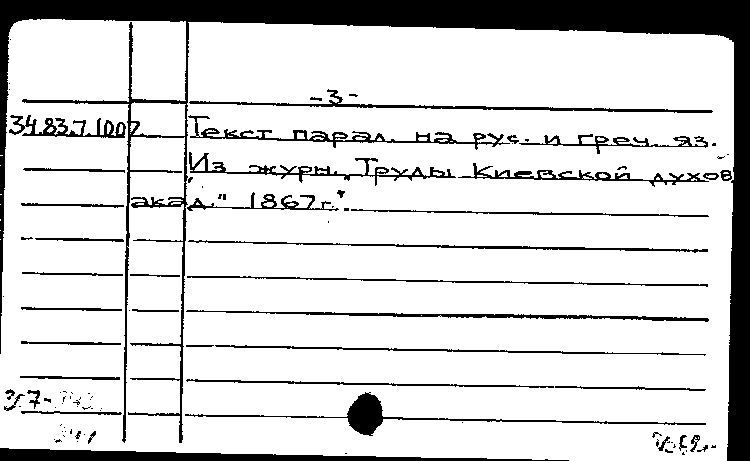 -3-
34.83.7.1007 Текст парал. на рус. и греч. яз.
"Из журн. "Труды Киевской духов.
акад." 1867г."